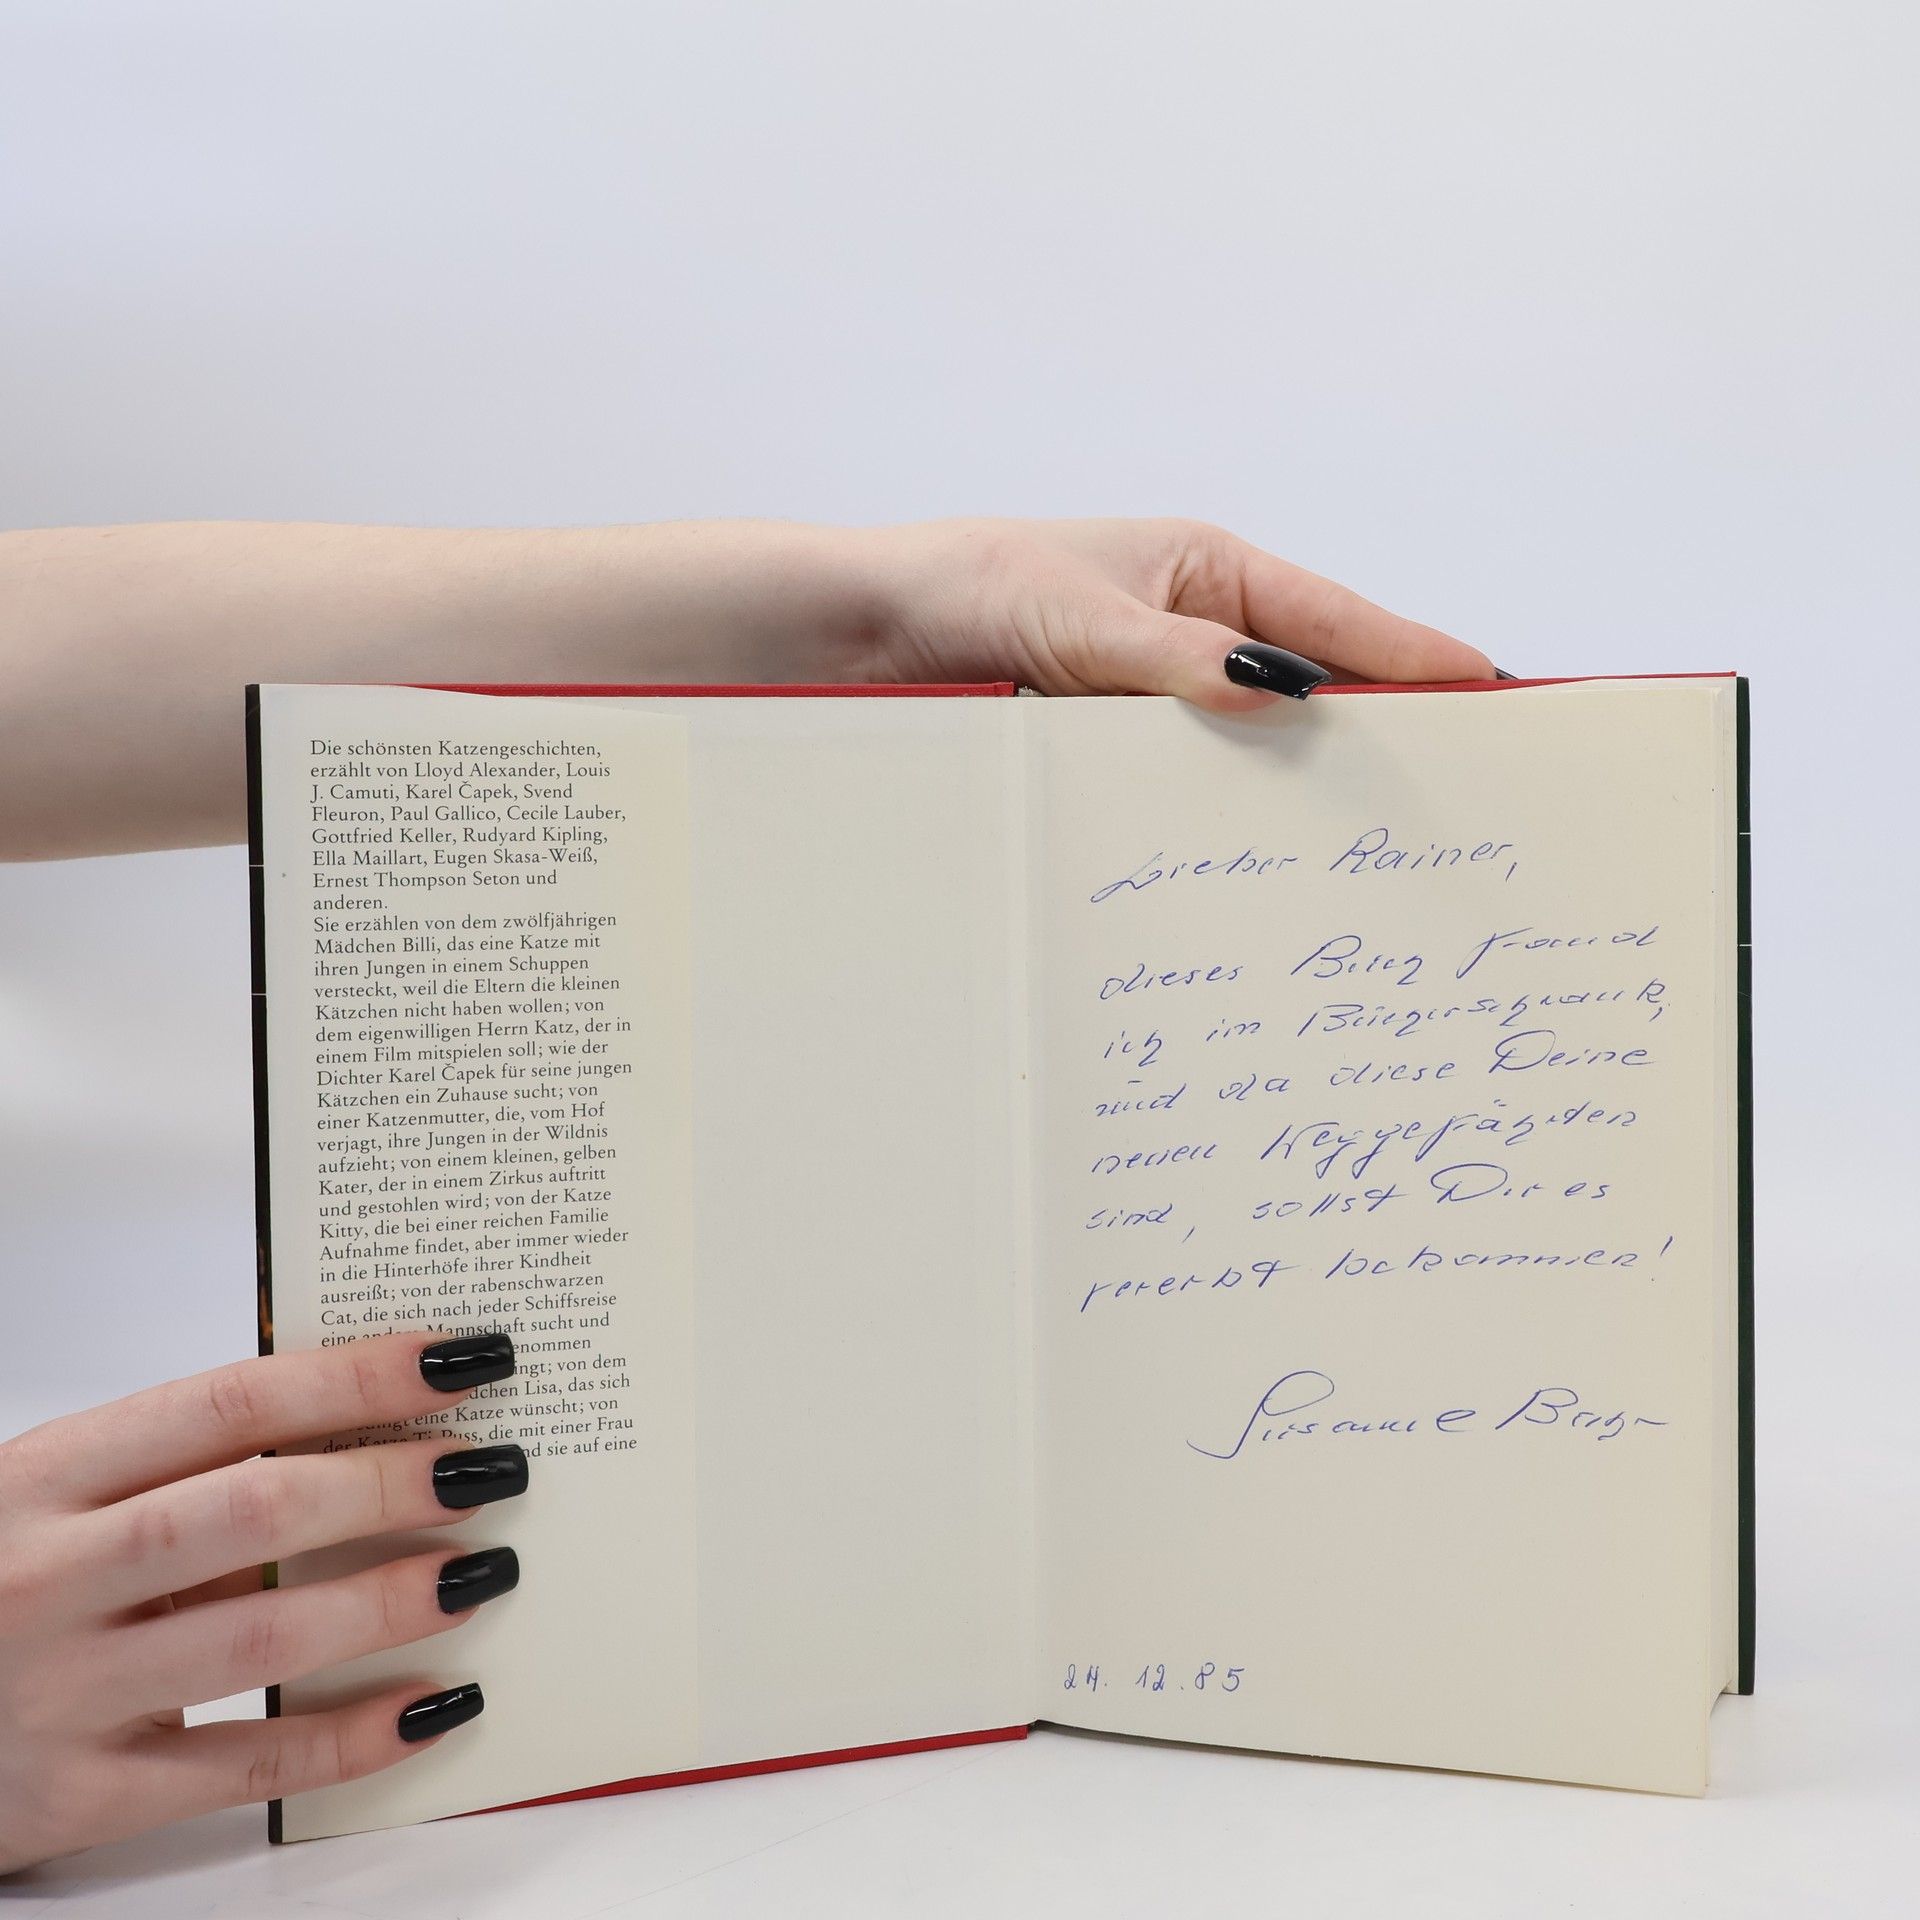 Die schönsten Katzengeschichten,
erzählt von Lloyd Alexander, Louis
J. Camuti, Karel Čapek, Svend
Fleuron, Paul Gallico, Cecile Lauber,
Gottfried Keller, Rudyard Kipling,
Ella Maillart, Eugen Skasa-Weiß,
Ernest Thompson Seton und
anderen.
Sie erzählen von dem zwölfjährigen
Mädchen Billi, das eine Katze mit
ihren Jungen in einem Schuppen
versteckt, weil die Eltern die kleinen
Kätzchen nicht haben wollen; von
dem eigenwilligen Herrn Katz, der in
einem Film mitspielen soll; wie der
Dichter Karel Čapek für seine jungen
Kätzchen ein Zuhause sucht; von
einer Katzenmutter, die, vom Hof
verjagt, ihre Jungen in der Wildnis
aufzieht; von einem kleinen, gelben
Kater, der in einem Zirkus auftritt
und gestohlen wird; von der Katze
Kitty, die bei einer reichen Familie
Aufnahme findet, aber immer wieder
in die Hinterhöfe ihrer Kindheit
ausreißt; von der rabenschwarzen
Cat, die sich nach jeder Schiffsreise
eine andere Mannschaft sucht und
von dem
Lisa, das sich
eine Katze wünscht; von
der Katze Ti-Puss, die mit einer Frau
sie auf eine
Lieber Rainer,
dieses Buch fand
ich im Bücherschrank,
und da diese Deine
neuen Weggefährten
sind, sollst Du es
vererbt bekommen!
Susanne
24. 12. 85